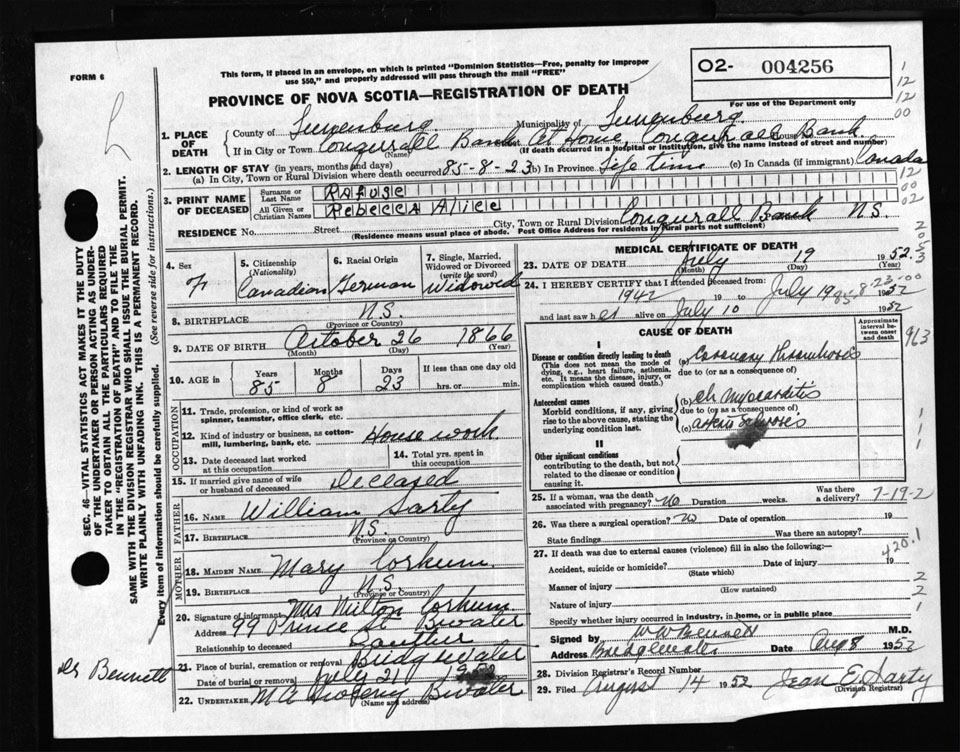 FORM 6
This form, if placed in an envelope, on which is printed "Dominion Statistics—Free, penalty for improper
use $50," and properly addressed will pass through the mail "FREE"
O2- 004256
For use of the Department only
PROVINCE OF NOVA SCOTIA—REGISTRATION OF DEATH
1. PLACE OF DEATH
County of Lunenburg Municipality of Lunenburg
If in City or Town Conqurall Bank At Home, Conqurall Bank House No.
(Name) (If death occurred in a hospital or institution, give the name instead of street and number)
2. LENGTH OF STAY (in years, months and days)
(a) In City, Town or Rural Division where death occurred 85-8-23 (b) In Province Life time (c) In Canada (if immigrant) Canada
3. PRINT NAME OF DECEASED
Surname or Last Name Rafuse
All Given or Christian Names Rebecca Alice
RESIDENCE No. Street City, Town or Rural Division Conqurall Bank N.S.
(Residence means usual place of abode. Post Office Address for residents in rural parts not sufficient)
4. Sex F
5. Citizenship (Nationality) Canadian
6. Racial Origin German
7. Single, Married, Widowed or Divorced (write the word) Widowed
8. BIRTHPLACE N.S.
(Province or Country)
9. DATE OF BIRTH October 26 1866
(Month) (Day) (Year)
10. AGE in Years 85 Months 8 Days 23 If less than one day old hrs. or min.
OCCUPATION
11. Trade, profession, or kind of work as spinner, teamster, office clerk, etc.
12. Kind of industry or business, as cotton-mill, lumbering, bank, etc. House work
13. Date deceased last worked at this occupation
14. Total yrs. spent in this occupation
15. If married give name of wife or husband of deceased Deceased
FATHER
16. NAME William Sarty
17. BIRTHPLACE N.S.
(Province or Country)
MOTHER
18. MAIDEN NAME Mary Corkum
19. BIRTHPLACE N.S.
(Province or Country)
20. Signature of informant Mrs Milton Corkum
Address 99 Prince St B'water
Relationship to deceased Daughter
21. Place of burial, cremation or removal Bridgewater
Date of burial or removal July 21 1952
22. UNDERTAKER B'water
(Name and address)
MEDICAL CERTIFICATE OF DEATH
23. DATE OF DEATH July 19 1952
(Month) (Day) (Year)
24. I HEREBY CERTIFY that I attended deceased from
1942 19 to July 19 1952
and last saw her alive on July 10 1952
85-8-23-00
CAUSE OF DEATH
Approximate interval between onset and death
I
Disease or condition directly leading to death
(This does not mean the mode of dying, e.g., heart failure, asthenia, etc. It means the disease, injury, or complication which caused death.)
(a) Coronary Thrombosis
due to (or as a consequence of)
Antecedent causes
Morbid conditions, if any, giving rise to the above cause, stating the underlying condition last.
(b) ch myocarditis
due to (or as a consequence of)
(c) arterio sclerosis
II
Other significant conditions
contributing to the death, but not related to the disease or condition causing it.
25. If a woman, was the death associated with pregnancy? No Duration weeks. Was there a delivery? 7-19-2
26. Was there a surgical operation? No Date of operation 19
State findings Was there an autopsy?
27. If death was due to external causes (violence) fill in also the following:—
Accident, suicide or homicide? Date 19
(State which)
420.1
Manner of injury
(How sustained)
Nature of injury
Specify whether injury occurred in industry, in home, or in public place
Signed by W W Bennett M.D.
Address Bridgewater Date Aug 8 1952
28. Division Registrar's Record Number
29. Filed August 14 1952 Jean E. Sarty
(Division Registrar)
SEC. 46—VITAL STATISTICS ACT MAKES IT THE DUTY
OF THE UNDERTAKER OR PERSON ACTING AS UNDER-
TAKER TO OBTAIN ALL THE PARTICULARS REQUIRED
IN THE "REGISTRATION OF DEATH" AND TO FILE THE
SAME WITH THE DIVISION REGISTRAR WHO SHALL ISSUE THE BURIAL PERMIT.
WRITE PLAINLY WITH UNFADING INK. THIS IS A PERMANENT RECORD.
Every item of information should be carefully supplied. (See reverse side for instructions.)
Dr Bennett